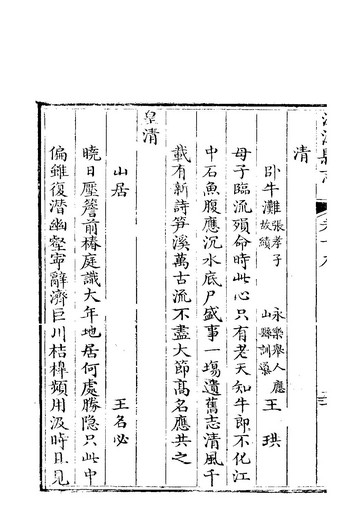 縣志
清
臥牛灘張孝子故蹟 永樂舉人應山縣訓導 王珙
母子臨流殞命時此心只有老天知牛郎不化江
中石魚腹應沉水底尸盛事一場遺舊志清風千
載有新詩笋溪萬古流不盡大節高名應共之
皇清
山居 王名必
曉日壓簷前椿庭識大年地居何處勝隐只此中
偏雖復潜幽壑寧辭濟巨川桔槔頻用汲時日見